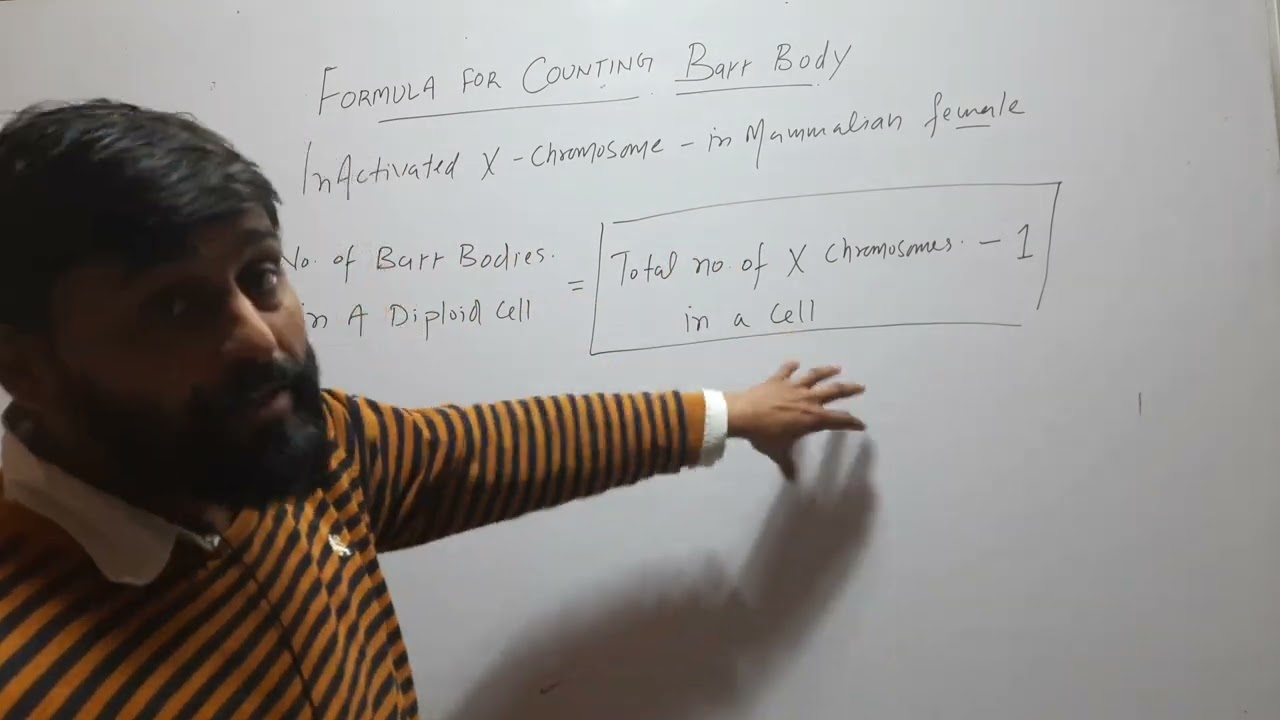 FORMULA FOR COUNTING Barr Body
InActivated X - Chromosome - in Mammalian female
No. of Barr Bodies. = Total no. of X Chromosomes. - 1
in A Diploid Cell in a Cell